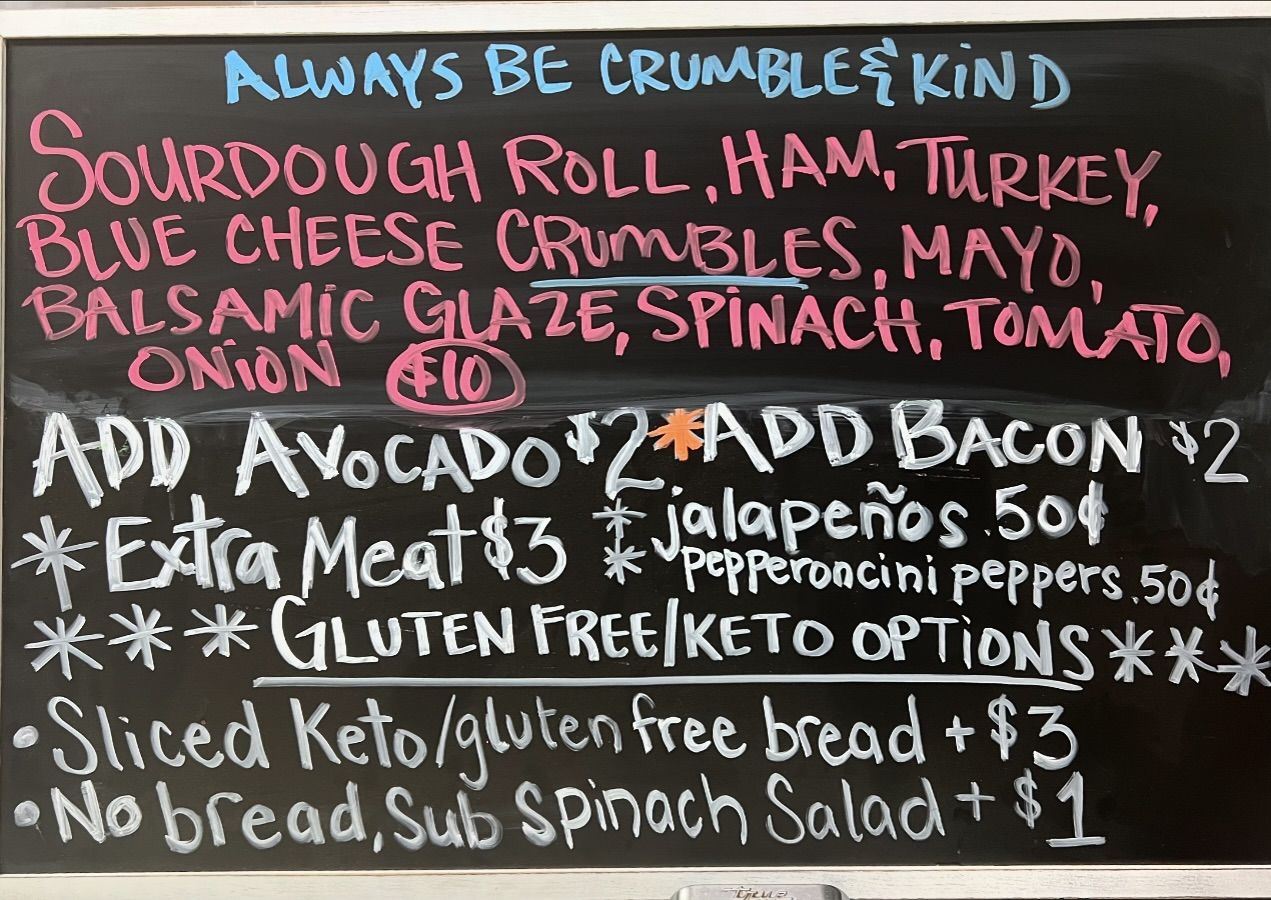 ALWAYS BE CRUMBLE & KIND
SOURDOUGH ROLL, HAM, TURKEY,
BLUE CHEESE CRUMBLES, MAYO,
BALSAMIC GLAZE, SPINACH, TOMATO,
ONION $10
ADD AVOCADO $2 * ADD BACON $2
* Extra Meat $3 * jalapeños .50¢
* pepperoncini peppers .50¢
*** GLUTEN FREE/KETO OPTIONS ***
• Sliced Keto/gluten free bread + $3
• No bread, Sub Spinach Salad + $1